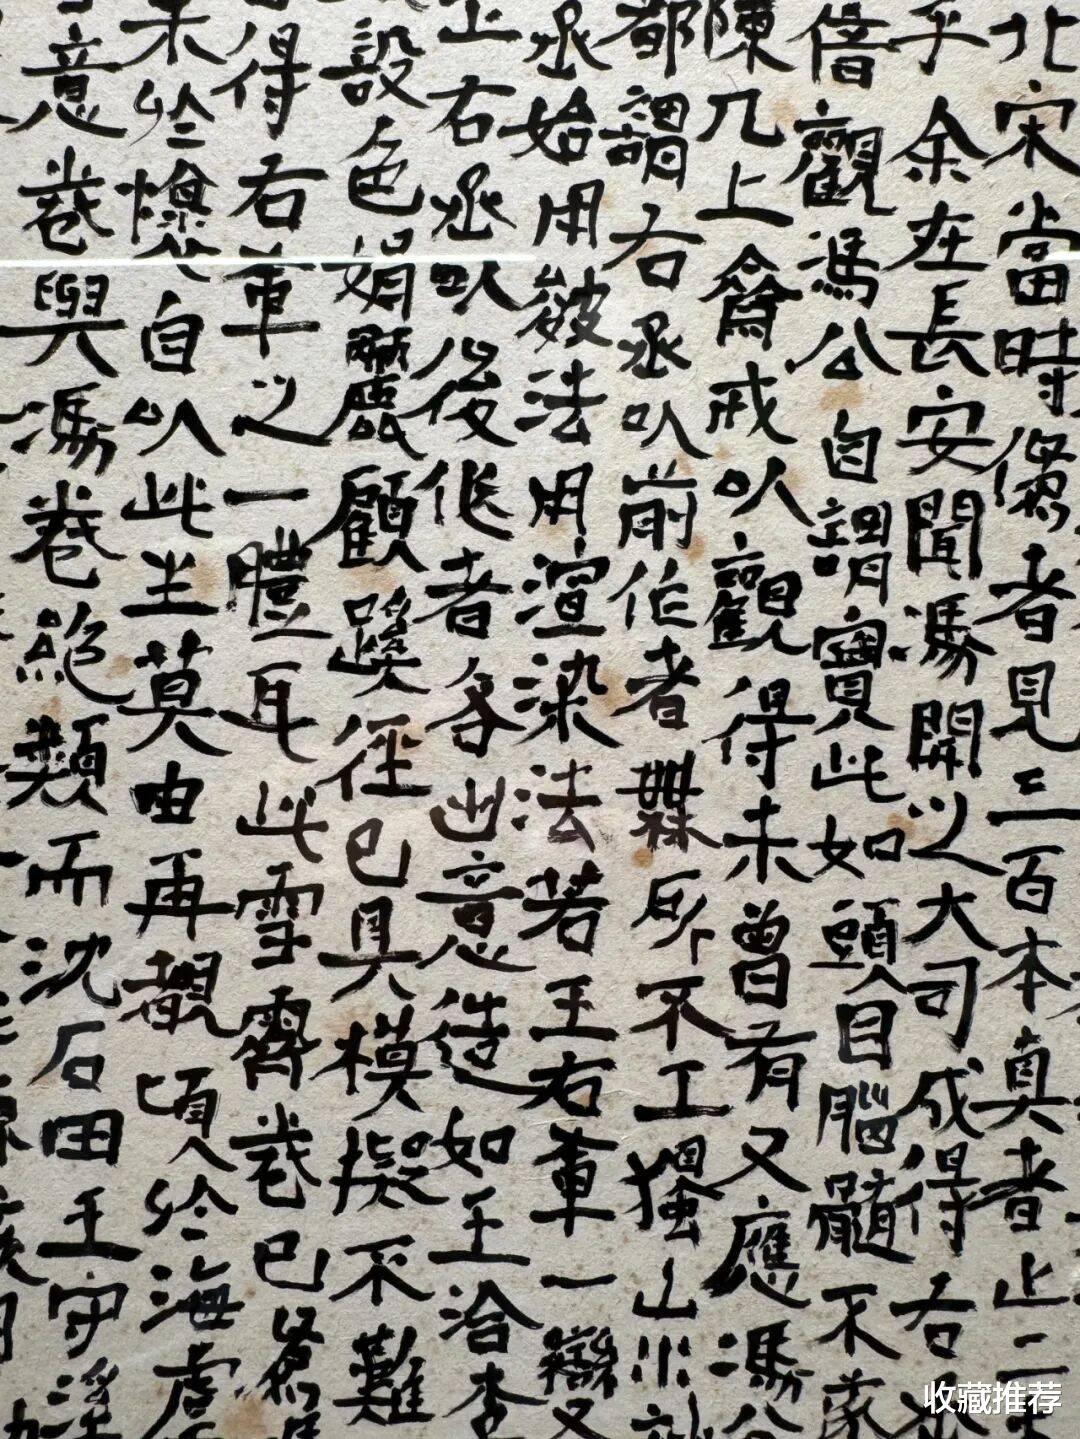 北宋當時偽者見三百本真者止二
乎余在長安聞馮開之大司成得右丞
借觀馮公自謂寶此如頭目腦髓不
陳几上齋戒以觀得未曾有又應馮公
都謂右丞以前作者無所不工獨山水
丞始用皴法用渲染法若王右軍一變
上右丞以後作者各出意造如王洽李
設色娟麗顧蹊徑已具模擬不難
得右軍之一體耳此雪霽卷已
未於燦自以此生莫由再覯頃於海虞
意卷與馮卷絕類而沈石田王守溪
收藏推荐